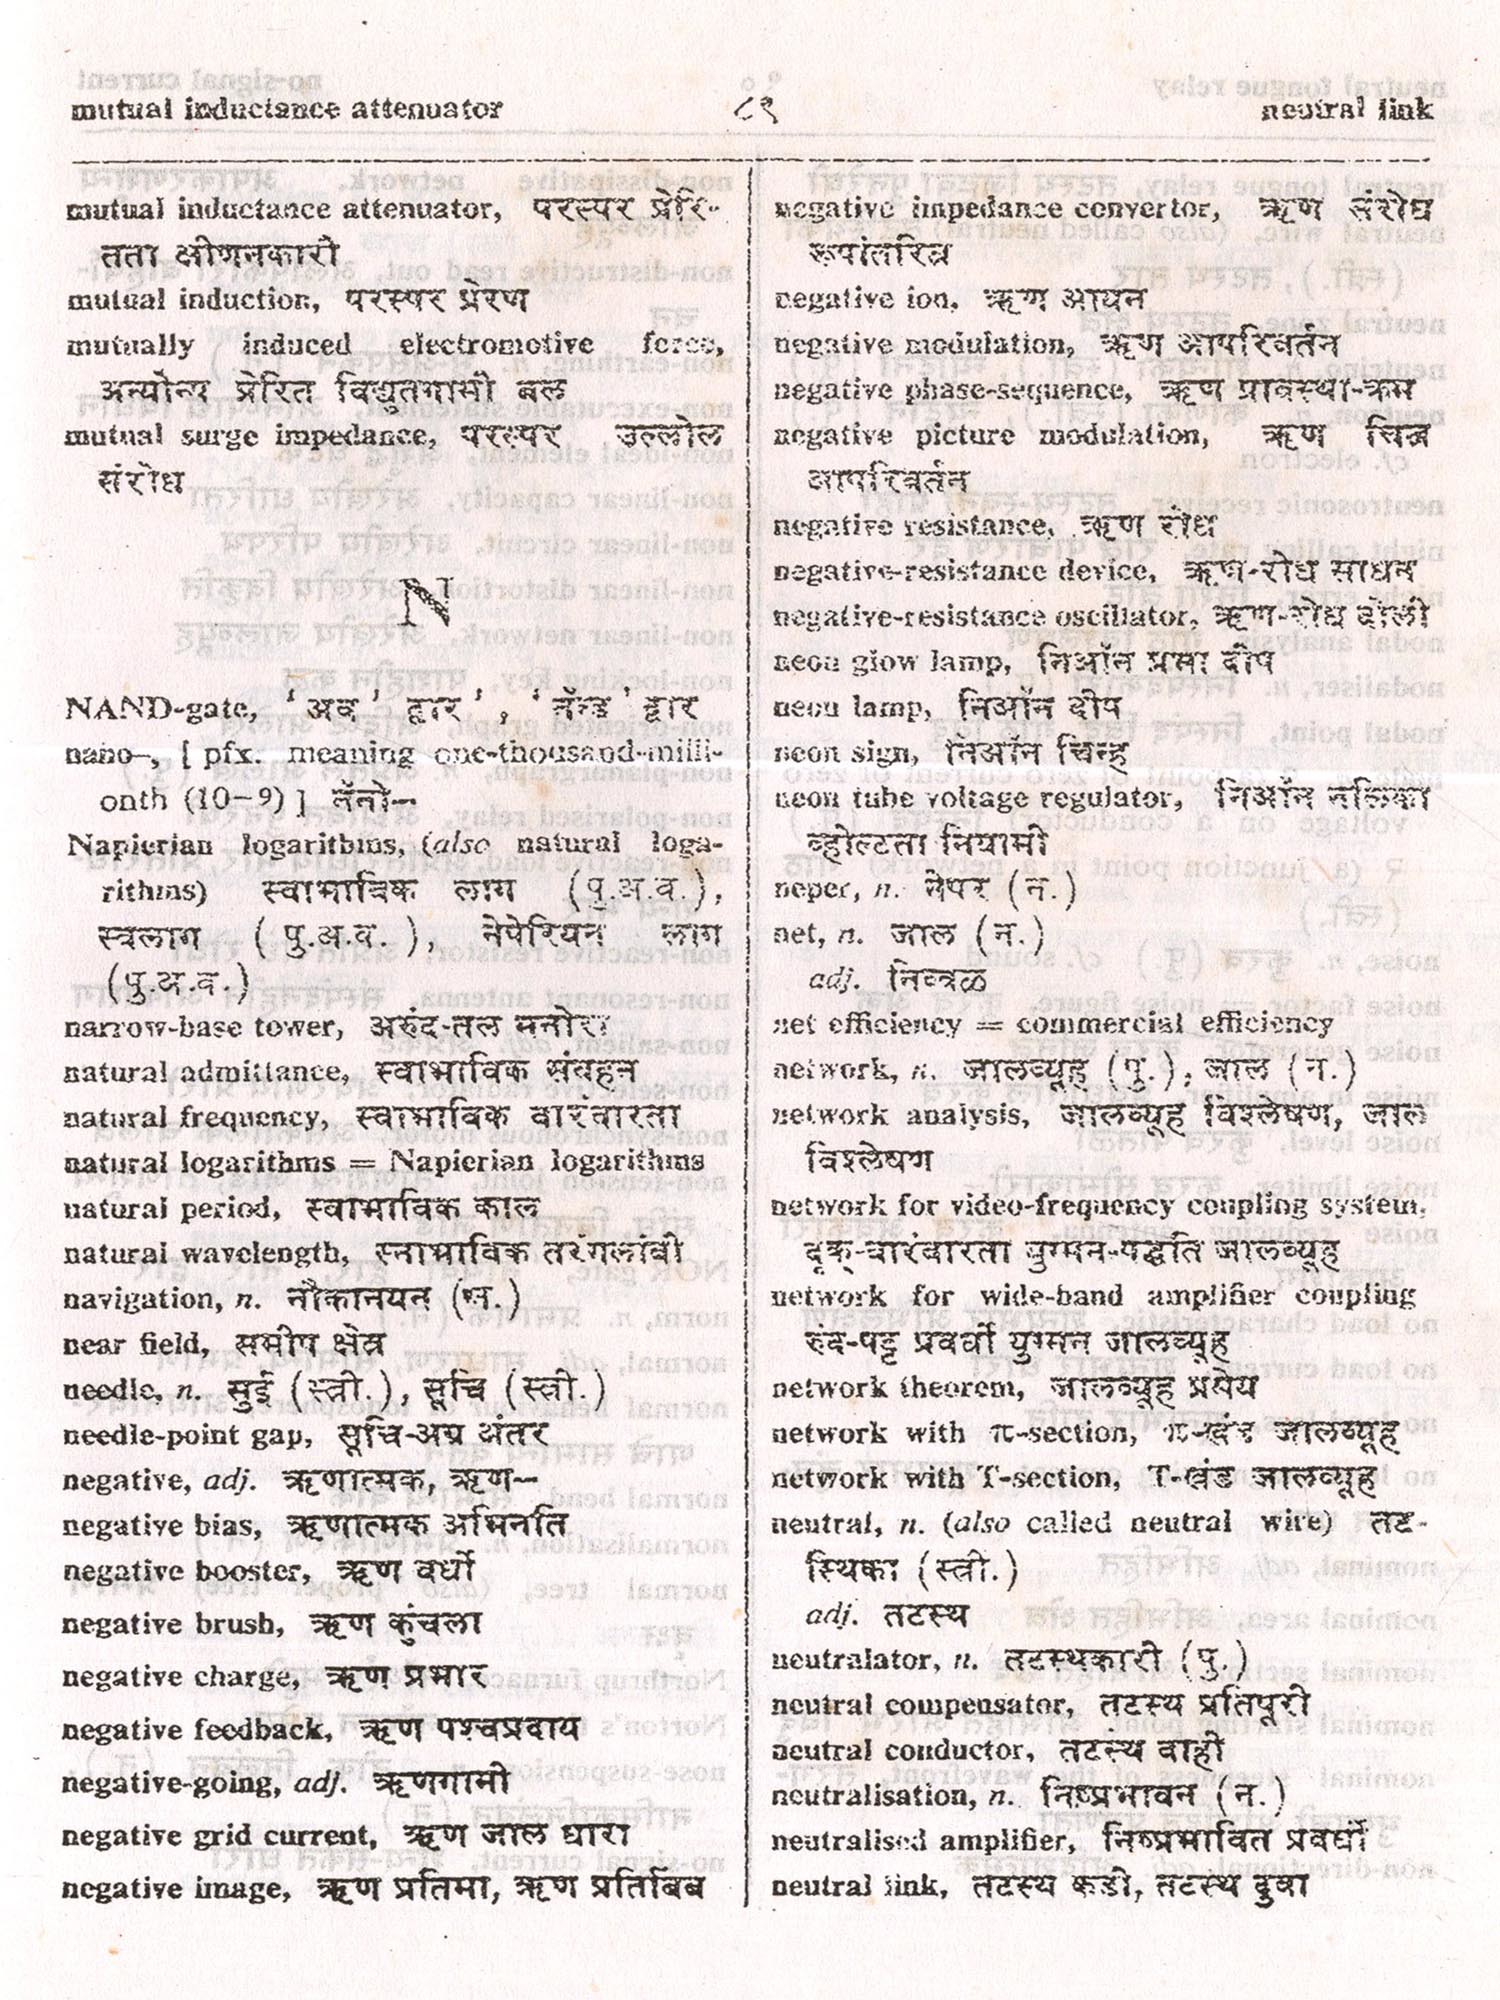 mutual inductance attenuator ८९ neutral link
mutual inductance attenuator, परस्पर प्रेरि-
तता क्षीणनकारी
mutual induction, परस्पर प्रेरण
mutually induced electromotive force,
अन्योन्य प्रेरित विद्युतगामी बल
mutual surge impedance, परस्पर उल्लोल
संरोध
N
NAND-gate, ' अव ' द्वार ' , ' नॅन्ड ' द्वार
nano–, [ pfx. meaning one-thousand-milli-
onth (10–9) ] नॅनो–
Napierian logarithms, (also natural loga-
rithms) स्वाभाविक लाग (पु.अ.व.),
स्वलाग (पु.अ.व.), नेपेरियन लाग
(पु.अ.व.)
narrow-base tower, अरुंद-तल मनोरा
natural admittance, स्वाभाविक संवहन
natural frequency, स्वाभाविक वारंवारता
natural logarithms = Napierian logarithms
natural period, स्वाभाविक काल
natural wavelength, स्वाभाविक तरंगलांबी
navigation, n. नौकानयन (न.)
near field, समीप क्षेत्र
needle, n. सुई (स्त्री.), सूचि (स्त्री.)
needle-point gap, सूचि-अग्र अंतर
negative, adj. ऋणात्मक, ऋण–
negative bias, ऋणात्मक अभिनति
negative booster, ऋण वर्धी
negative brush, ऋण कुंचला
negative charge, ऋण प्रभार
negative feedback, ऋण पश्चप्रदाय
negative-going, adj. ऋणगामी
negative grid current, ऋण जाल धारा
negative image, ऋण प्रतिमा, ऋण प्रतिबिंब
negative impedance convertor, ऋण संरोध
रूपांतरित्र
negative ion, ऋण आयन
negative modulation, ऋण आपरिवर्तन
negative phase-sequence, ऋण प्रावस्था-क्रम
negative picture modulation, ऋण चित्र
आपरिवर्तन
negative resistance, ऋण रोध
negative-resistance device, ऋण-रोध साधन
negative-resistance oscillator, ऋण-रोध दोली
neon glow lamp, निऑन प्रभा दीप
neon lamp, निऑन दीप
neon sign, निऑन चिन्ह
neon tube voltage regulator, निऑन नलिका
व्होल्टता नियामी
neper, n. नेपर (न.)
net, n. जाल (न.)
adj. निव्वळ
net efficiency = commercial efficiency
network, n. जालव्यूह (पु.), जाल (न.)
network analysis, जालव्यूह विश्लेषण, जाल
विश्लेषण
network for video-frequency coupling system,
दृक्-वारंवारता युग्मन-पद्धति जालव्यूह
network for wide-band amplifier coupling
रुंद-पट्ट प्रवर्धी युग्मन जालव्यूह
network theorem, जालव्यूह प्रमेय
network with π-section, π-खंड जालव्यूह
network with T-section, T-खंड जालव्यूह
neutral, n. (also called neutral wire) तट-
स्थिका (स्त्री.)
adj. तटस्थ
neutralator, n. तटस्थकारी (पु.)
neutral compensator, तटस्थ प्रतिपूरी
neutral conductor, तटस्थ वाही
neutralisation, n. निष्प्रभावन (न.)
neutralised amplifier, निष्प्रभावित प्रवर्धी
neutral link, तटस्थ कडी, तटस्थ दुवा